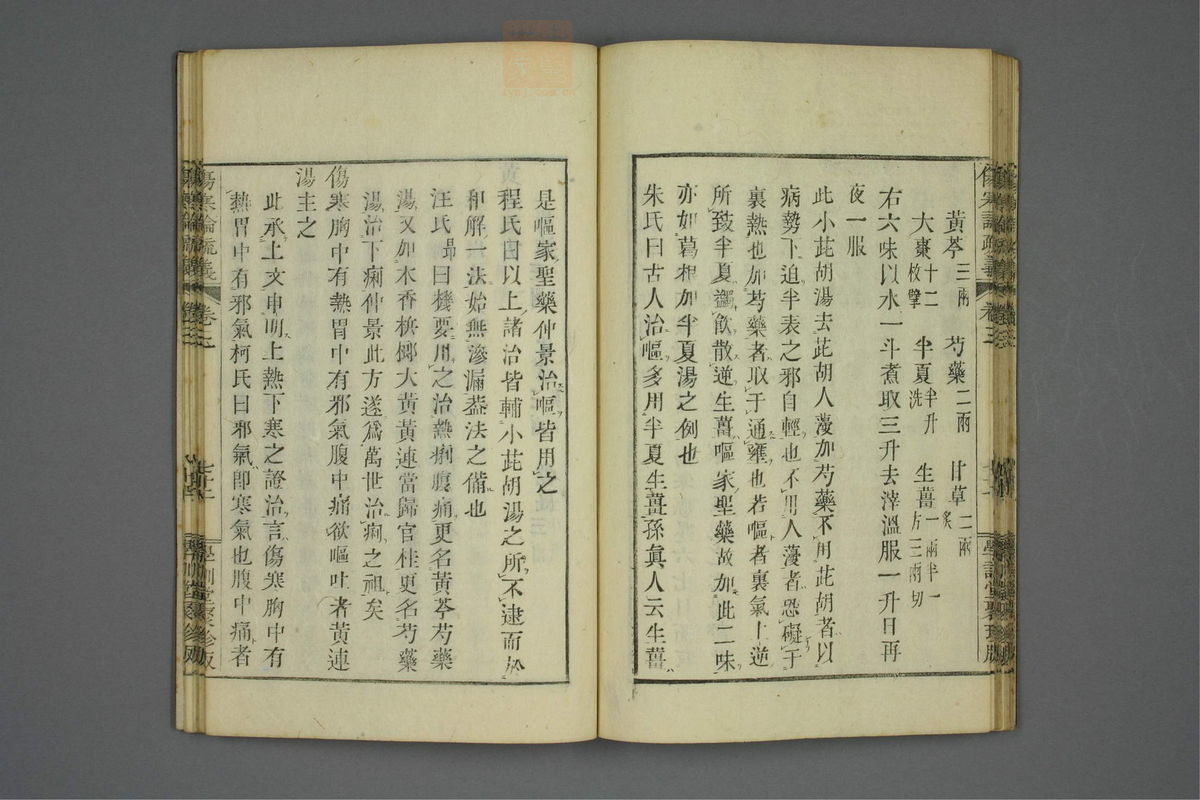 黃芩三兩 芍藥二兩 甘草二兩炙
大棗十二枚擘 半夏半升洗 生薑一兩半一方三兩切
右六味以水一斗煮取三升去滓溫服一升日再
夜一服
此小茈胡湯去茈胡人薓加芍藥不用茈胡者以
病勢下迫半表之邪自輕也不用人薓者恐礙于
裏熱也加芍藥者取于通壅也若嘔者裏氣上逆
所致半夏蠲飮散逆生薑嘔家聖藥故加此二味
亦如葛根加半夏湯之例也
朱氏曰古人治嘔多用半夏生薑孫眞人云生薑
是嘔家聖藥仲景治嘔皆用之
程氏曰以上諸治皆輔小茈胡湯之所不逮而於
和解一法始無滲漏葢法之備也
汪氏昻曰機要用之治熱痢腹痛更名黃芩芍藥
湯又加木香梹榔大黃黃連當歸官桂更名芍藥
湯治下痢仲景此方遂爲萬世治痢之祖矣
傷寒胸中有熱胃中有邪氣腹中痛欲嘔吐者黃連
湯主之
此承上文申明上熱下寒之證治言傷寒胸中有
熱胃中有邪氣柯氏曰邪氣卽寒氣也腹中痛者
傷寒論疏義 卷三 七十二 學訓堂聚珍版